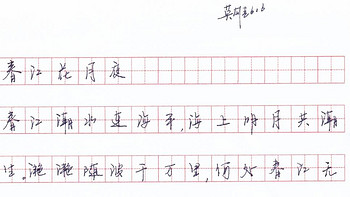 春江花月夜
春江潮水連海平,海上明月共潮
生,滟滟随波千万里,何处春江无